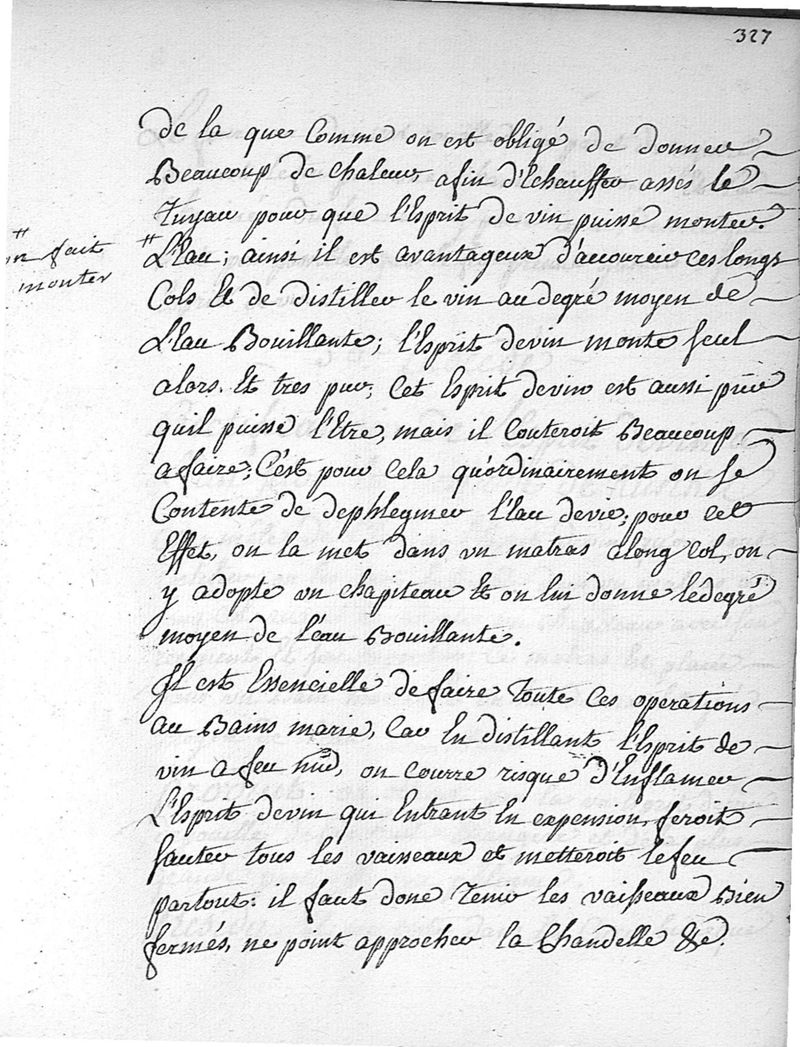 327
de la que Comme on est obligé de donner
Beaucoup de chaleur, afin d'Echauffer assés le
Tuyau pour que l'Esprit de vin puisse monter.
# L'Eau; ainsi il est avantageux d'accourcir ces longs
#
on fait
monter
Cols Et de distiller le vin au degré moyen de
L'Eau Bouillante; l'Esprit de vin monte seul
alors. Et tres pur; Cet Esprit de vin est aussi pur
quil puisse l'Etre, mais il Couteroit Beaucoup
a faire; C'est pour Cela qu'ordinairement on se
Contente de dephlegmer l'Eau de vie; pour cet
Effet, on la met dans un matras a long Col, on
y adopte un chapiteau Et on lui donne le degré
moyen de l'éau Bouillante.
Il est Essencielle de faire Toute Ces operations
au Bains marie, Car En distillant l'Esprit de
vin a feu nud, on courre risque d'Enflamer
L'Esprit de vin qui Entrant En expension, feroit
sauter tous les vaisseaux et metteroit le feu
partout: il faut donc Tenir les vaisseaux Bien
fermés, ne point approcher la Chandelle &c.